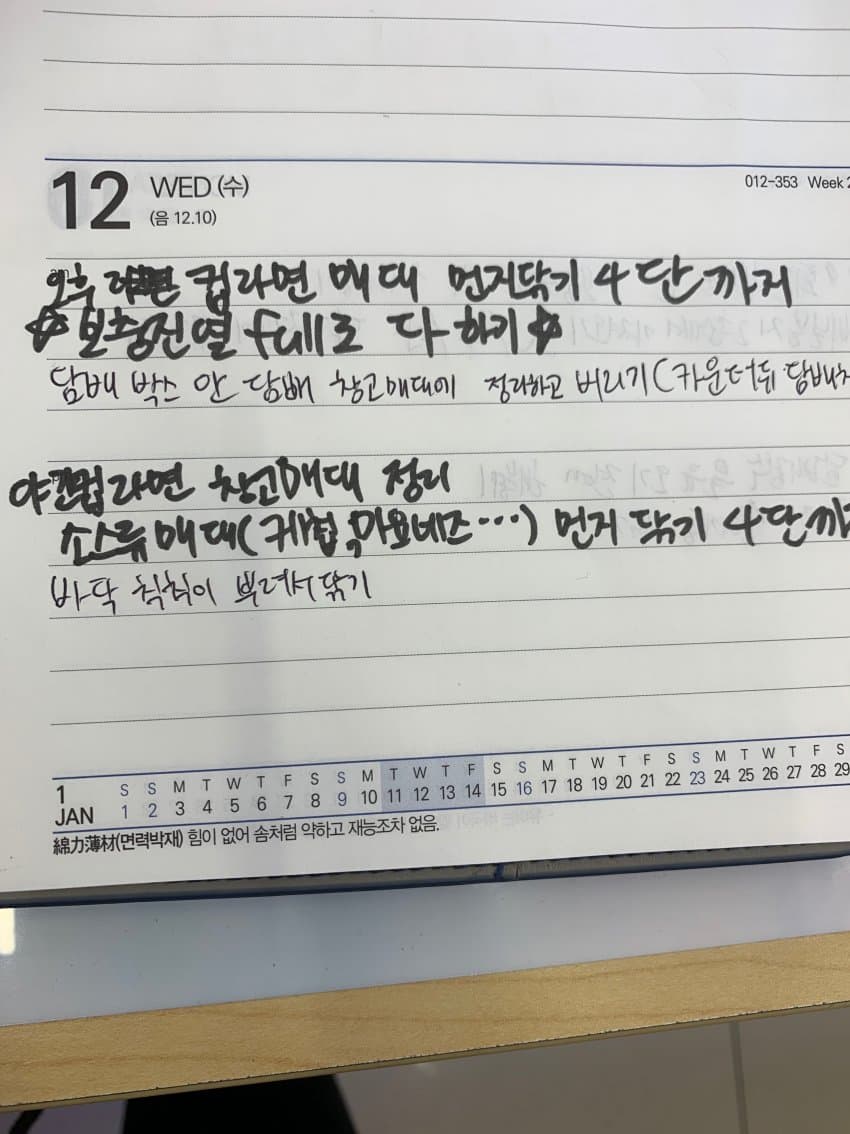 12 WED (수) 012-353 Week
(음 12.10)
오후 컵라면 매대 먼지닦기 4단까지
☆ 보충진열 full로 다 하기 ☆
담배 박스 안 담배 창고매대에 정리하고 버리기 (카운터뒤 담배
야간 컵라면 창고매대 정리
소스류 매대(케찹, 마요네즈...) 먼지 닦기 4단까
바닥 칙칙이 뿌려서 닦기
S S M T W T F S S M T W T F S S M T W T F S S M T W T F S
1 JAN 1 2 3 4 5 6 7 8 9 10 11 12 13 14 15 16 17 18 19 20 21 22 23 24 25 26 27 28 29
綿力薄材(면력박재) 힘이 없어 솜처럼 약하고 재능조차 없음.